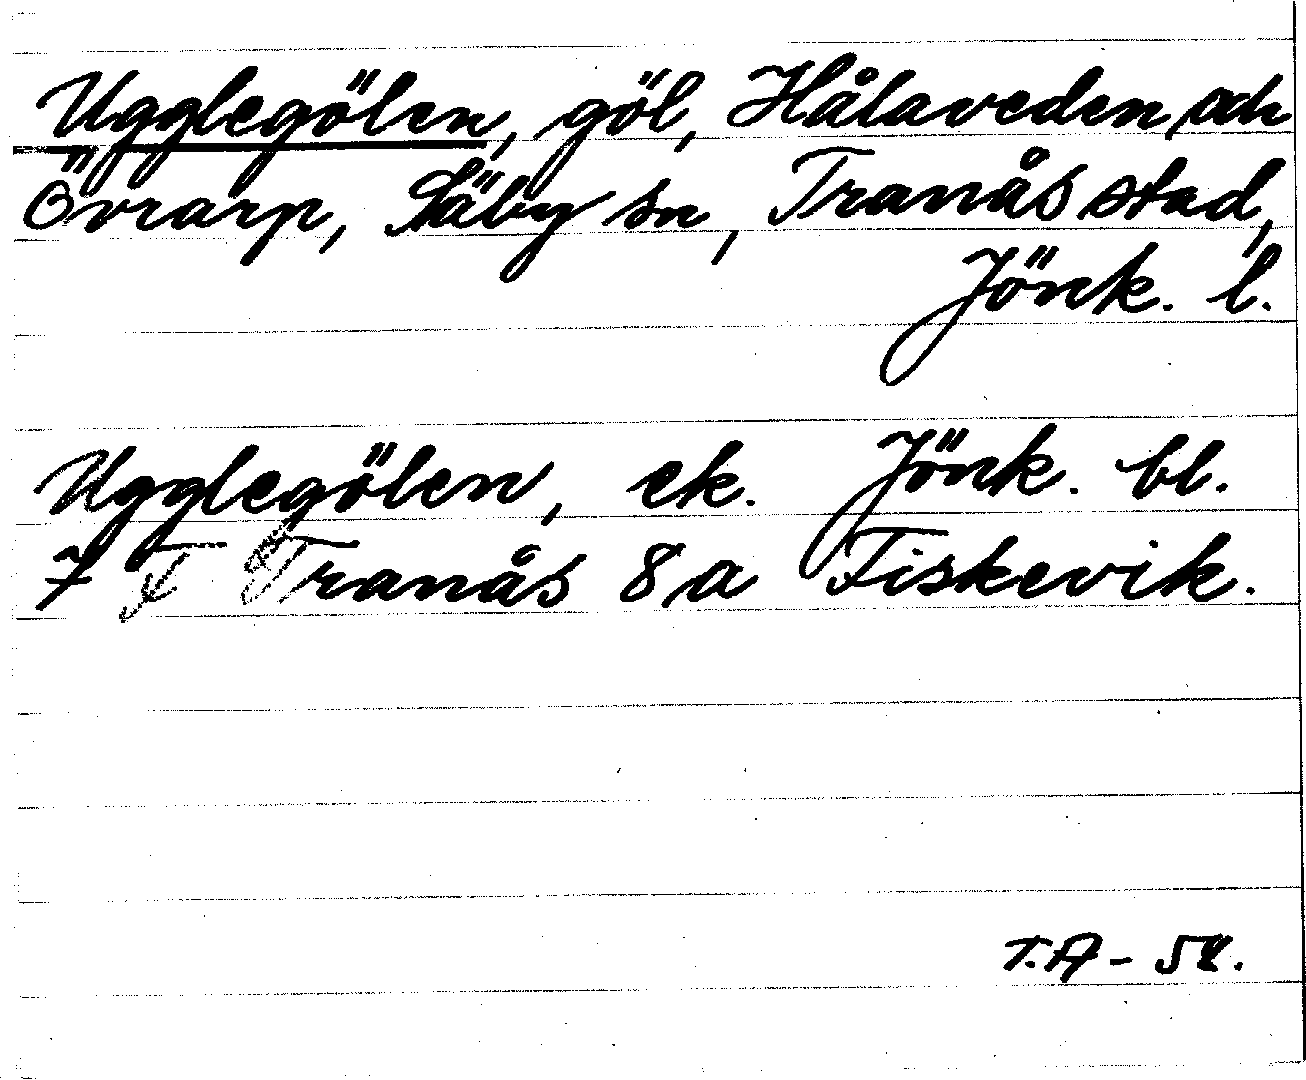 Ugglegölen, göl, Hålaveden och
Övrarp, Säby sn, Tranås stad,
Jönk. l.
Ugglegölen, ek. Jönk. bl.
7 F Tranås 8 a Fiskevik.
T.A -